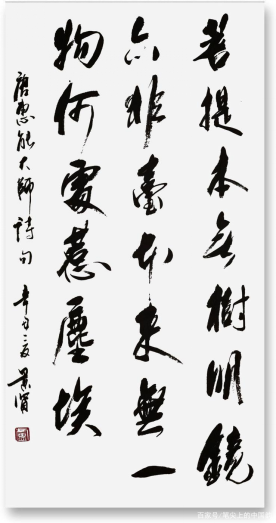 菩提本无樹明鏡
亦非臺本來無一
物何處惹塵埃
唐惠能大師詩句 辛丑之夏
百家号/笔尖上的中国